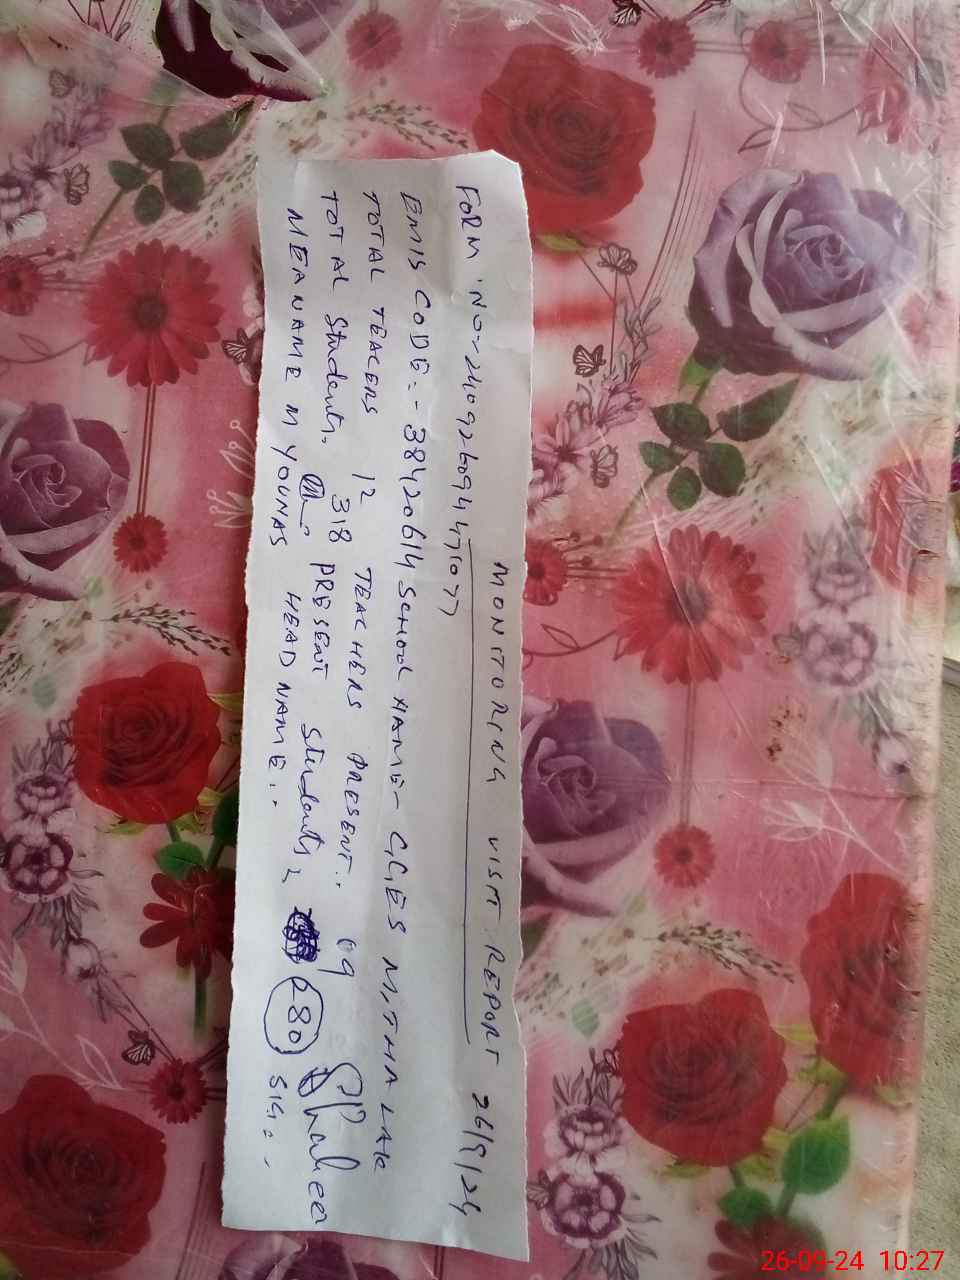 MONITORING VISIT REPORT 26/9/24
FORM NO 240926094471077
EMIS CODE:- 38420614 SCHOOL NAME- GGES MITHA LAK
TOTAL TEACERS 12 TEACHERS PRESENT:. 09
TOTAL Students. 318 PRESENT Students 280
MEA NAME M YOUNAS HEAD NAME:. SIG:-
26-09-24 10:27